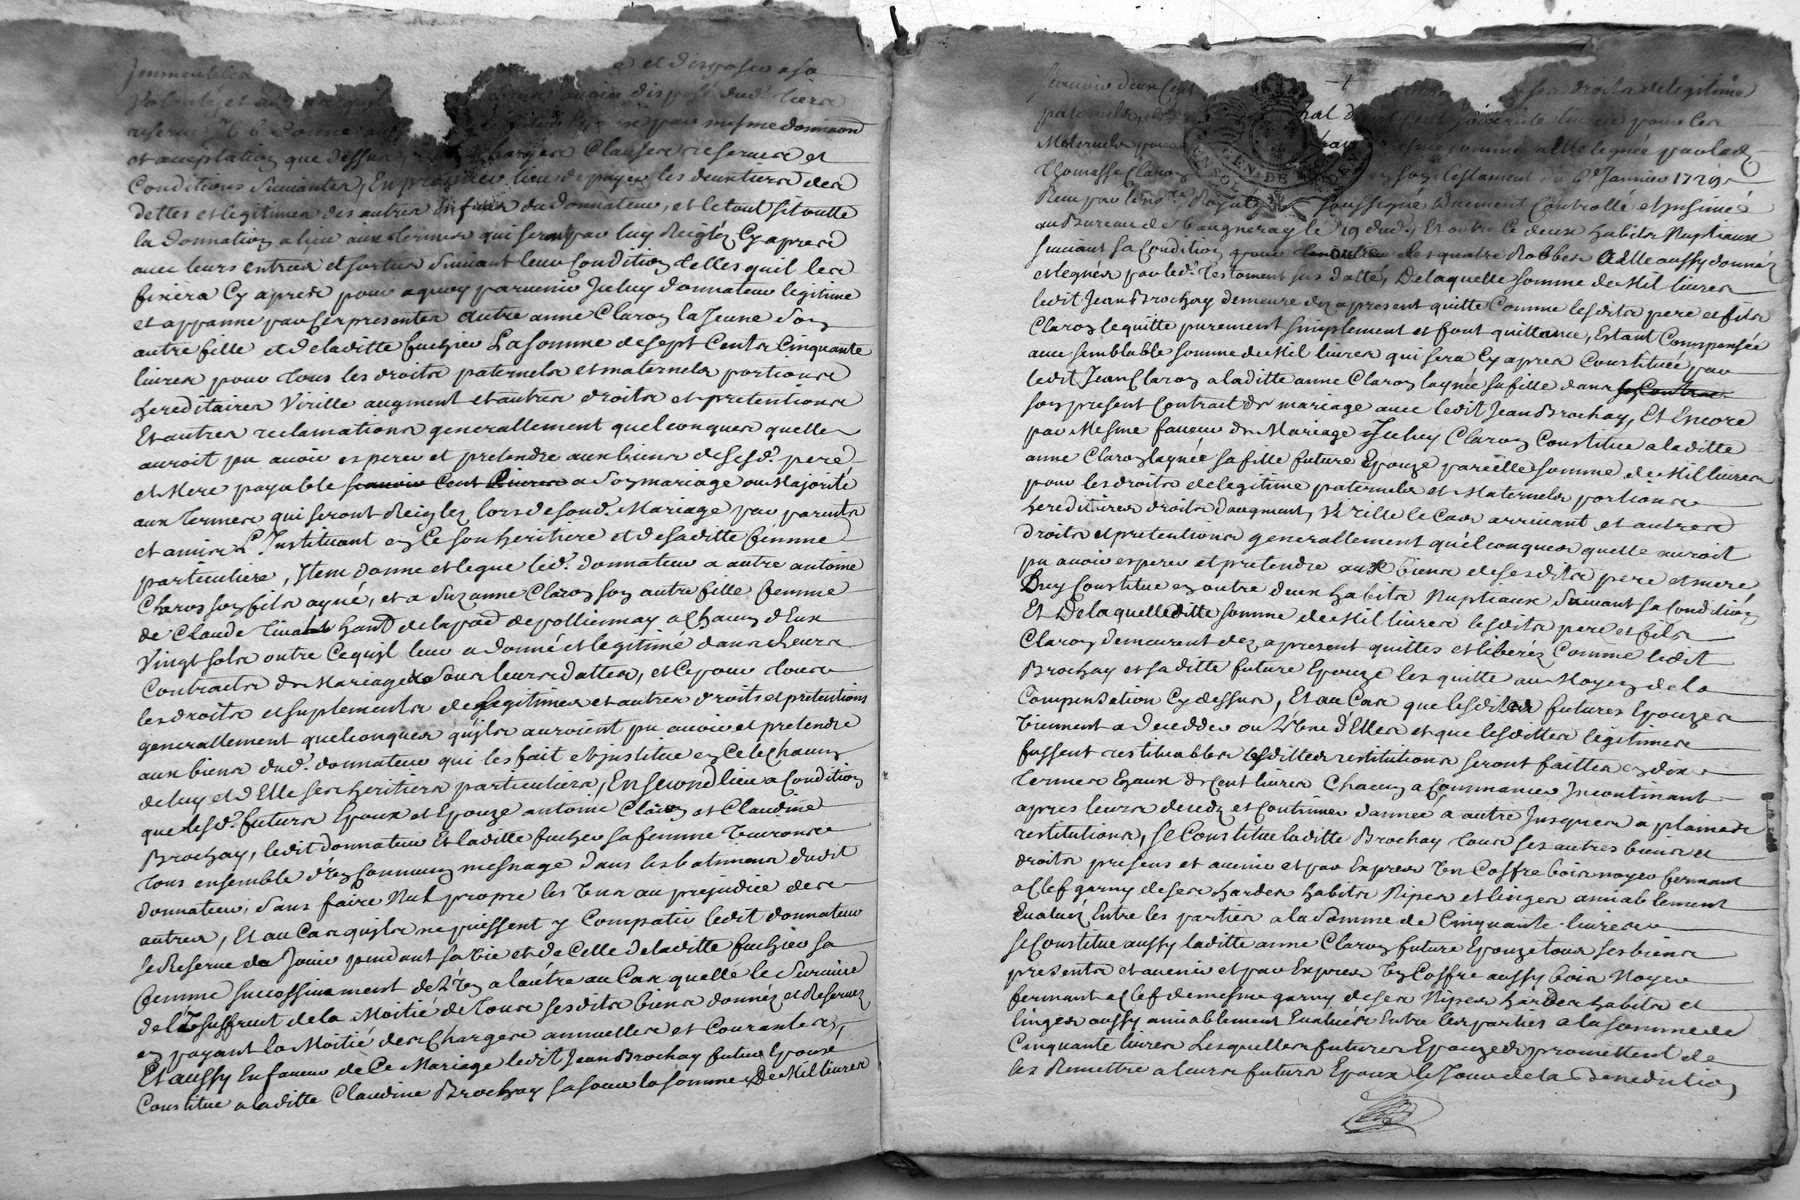 Immeubles et disposer a sa
volonté, et au cas quil avoir disposé dud. tiers
reserve Il le donne par mesme donnaon
et acceptation que dessus charges Clauses reserves et
Conditions Suivantes, En premier lieu de payer les deux tiers des
dettes et legitimes des autres Enfans du donnateur, et le tout sitoutte
la donnation a lieu aux termes qui seront par luy Reiglez Cy apres
avec leurs entrées et sorties Suivant leur Condition telles quil les
fixera Cy apres pour a quoy parvenir Icelluy donnateur legitime
et appanne par Ces presentes autre anne Claron la Jeune son
autre fille et de laditte La Somme de sept Cents Cinquante
livres pour tous les droits paternels et maternels portions
hereditaires Virille augment et autres droits et pretentions
Et autres reclamations generallement quelconques quelle
auroit pu avoir esperer et pretendre aux biens de sesd. pere
et Mere payable scavoir Cent Livres a Son mariage ou Majorité
aux termes qui seront Reiglez lors de sond. Mariage par parents
et amis L'Instituant en Ce son heritiere et de saditte femme
particuliere, Item donne et legue led. donnateur a autre antoine
Claron son fils ayné, et a Suzanne Claron son autre fille femme
de Claude hant de la par. de pollionnay a Chacun d'Eux
Vingt sols outre Cequil leur a donné et legitimé dans leurs
Contracts de Mariage Sous leurs dattes, et Ce pour tous
les droits et suplements de legitimes et autres droits et pretentions
generallement quelconques quils auroient pu avoir et pretendre
aux biens dud. donnateur qui les fait et institue en Cele Chacun
de luy et d'Elle ses heritiers particuliers, En second lieu a Condition
que lesd. futurs Epoux et Epouze antoine Claron et Claudine
Brochay, ledit donnateur Et laditte sa femme vivront
tous ensemble d'un Commun mesnage dans les batiments dudit
donnateur, Sans faire Nul propre les uns au prejudice des
autres, Et au Cas quils ne puissent y Compatir ledit donnateur
se Reserve de Jouir pendant sa Vie et de Celle de laditte sa
femme successivement de l'un a l'autre au Cas quelle le Survive
de l'Usuffruit de la Moitié de tous sesdits biens donnéz et Reservez
en payant la Moitié des Charges annuelles et Courantes,
Et aussy En faveur de Ce Mariage ledit Jean Brochay futur Epoux
Constitue a laditte Claudine Brochay sa soeur la somme De Mil livres
Scavoir deux Cent ses droits de legitime
paternels, livres pour les
Maternels pour a Elle leguée par lad.
Thomasse Claron en son testament du 6e Janvier 1729
Reçu par le no.re soussigné Duement Controllé et Insinué
au Bureau de Vaugneray le 19 dud., Et outre Ce deux habits Nuptiaux
suivant sa Condition pour des quatre Robbes a Elle aussy donnéz
et leguéz par led. testament sus datté, De laquelle somme de Mil livres
ledit Jean Brochay demeure dez a present quitte Comme lesdits pere et fils
Claron le quitte purement simplement et font quittance, Estant Compensée
avec semblable somme de Mil livres qui sera Cy apres Constituée par
ledit Jean Claron a laditte anne Claron laynée sa fille dans son Contrac
son present Contrait de mariage avec ledit Jean Brochay, Et Encore
par Mesme faveur de Mariage Icelluy Claron Constitue a laditte
anne Claron laynée sa fille future Epouze pareille somme de Mil livres
pour les droits de legitime paternels et Maternels portions
hereditaires droits d'augment, Virille le Cas arrivant et autres
droits et pretentions generallement quelconques quelle auroit
pu avoir esperer et pretendre aux biens de sesdits pere et mere
Luy Constitue en outre deux habits Nuptiaux Suivant sa Condition
Et De laquelleditte somme de Mil livres lesdits pere et fils
Claron demeurent dez a present quittes et liberéz Comme ledit
Brochay et saditte future Epouze les quitte au Moyen de la
Compensation Cy dessus, Et au Cas que lesdites futures Epouzes
viennent a decedder ou l'Une d'Elles et que lesdittes legitimes
fussent restituables lesdittes restitutions seront faittes en dix
termes Egaux de Cent livres Chacun a Commancer Incontinant
apres leurs decedz et Continuer d'année a autre Jusques a plaine
restitutions, Se Constitue laditte Brochay tous ses autres biens et
droits presens et avenir et par Expres Un Coffre bois noyer fermant
a Clef garny de ses hardes habits Nipes et linges amiablement
Evaluéz Entre les parties a la Somme de Cinquante livres
se Constitue aussy laditte anne Claron future Epouze tous ses biens
presents et avenir et par Expres Un Coffre aussy bois Noyer
fermant a Clef de mesme garny de ses Nipes hardes habits et
linges aussy amiablement Evaluéz Entre les parties a la somme de
Cinquante livres Lesquelles futures Epouzes promettent de
les Remettre a leurs futurs Epoux le Jour de la Benediction